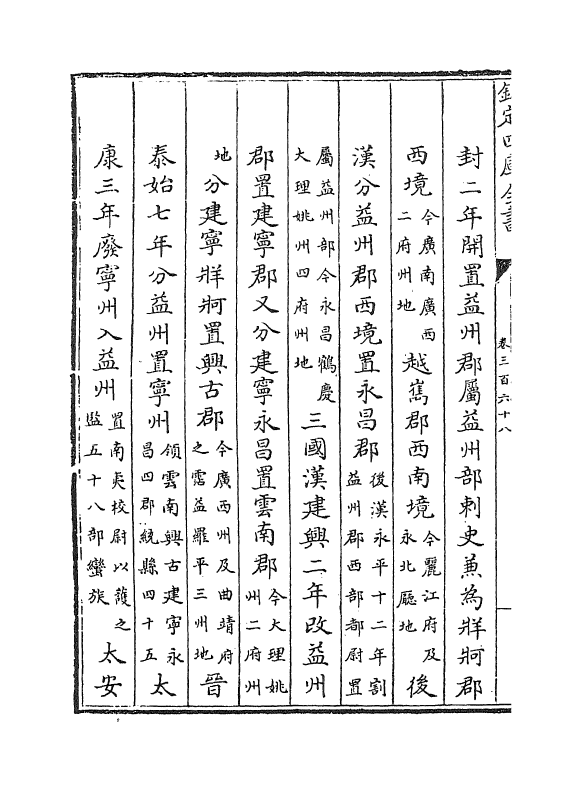 欽定四庫全書
卷三百六十八
封二年開置益州郡屬益州部刺史兼為牂牁郡
西境今廣南廣西二府州地越嶲郡西南境今麗江府及永北廳地後
漢分益州郡西境置永昌郡後漢永平十二年割益州郡西部都尉置
屬益州部今永昌鶴慶大理姚州四府州地三國漢建興二年改益州
郡置建寧郡又分建寧永昌置雲南郡今大理姚州二府州
地分建寧牂牁置興古郡今廣西州及曲靖府之霑益羅平三州地晉
泰始七年分益州置寧州領雲南興古建寧永昌四郡統縣四十五太
康三年廢寧州入益州置南夷校尉以護之監五十八部蠻族太安